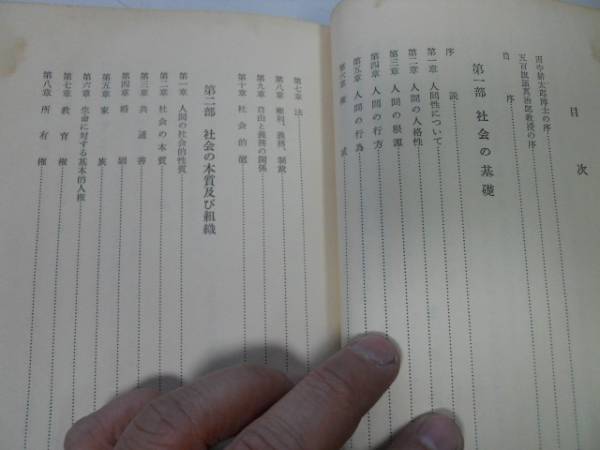 目次
田中耕太郎博士の序
五百旗頭真治郎教授の序
自序
第一部 社会の基礎
序説
第一章 人間性について
第二章 人間の人格性
第三章 人間の根源
第四章 人間の行方
第五章 人間の行為
第六章
第七章 法
第八章 権利、義務、制裁
第九章 自由と義務の関係
第十章 社会的徳
第二部 社会の本質及び組織
第一章 人間の社会的性質
第二章 社会の本質
第三章 共通善
第四章 婚姻
第五章 家族
第六章 生命に対する基本的人権
第七章 教育権
第八章 所有権